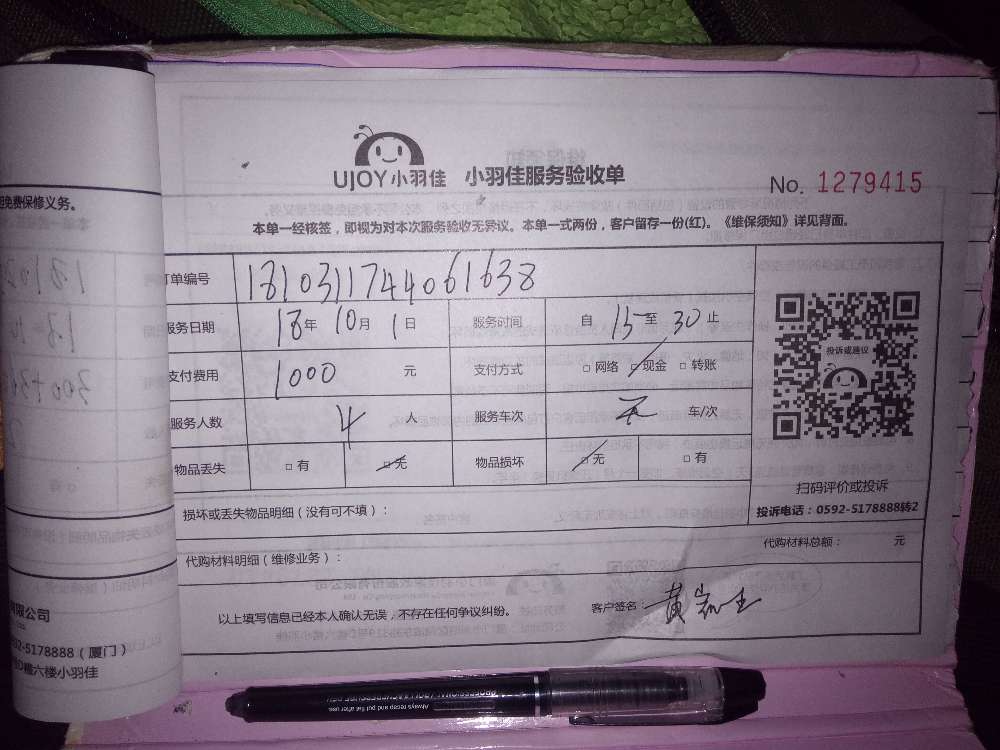 UJOY小羽佳 小羽佳服务验收单
No. 1279415
本单一经核签，即视为对本次服务验收无异议。本单一式两份，客户留存一份(红)。《维保须知》详见背面。
免费保修义务。
订单编号 181031174406​1638
服务日期 18年 10月 1日 服务时间 自 15 至 30 止
支付费用 1000 元 支付方式 □ 网络 □ 现金 □ 转账
服务人数 4 人 服务车次 无 车/次
物品丢失 □ 有 □ 无 物品损坏 □ 无 □ 有
投诉或建议
扫码评价或投诉
投诉电话：0592-5178888转2
损坏或丢失物品明细（没有可不填）：
代购材料明细（维修业务）： 代购材料总额： 元
以上填写信息已经本人确认无误，不存在任何争议纠纷。 客户签名：黄
有限公司
92-5178888（厦门）
六楼小羽佳
Always recap and put flat after use